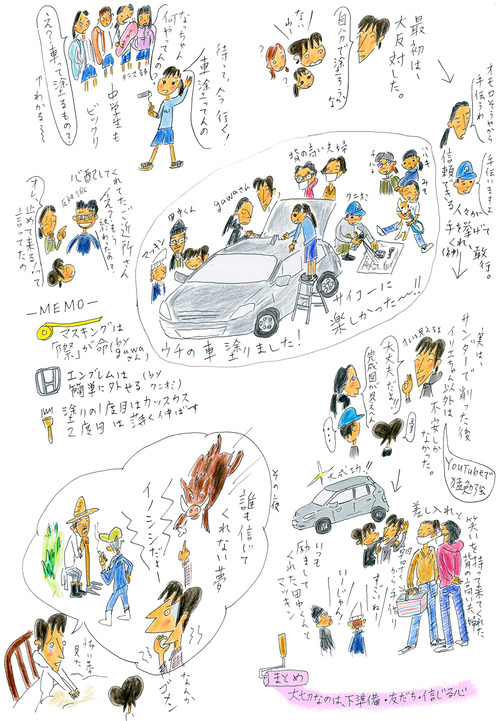 最初は、
大反対した。
自分で塗ろうかな
な、
オモロそうやから
手伝うわ
手伝います
信頼できる人々が
手を挙げて
くれ、敢行。
待ってて、今行く!
車塗ってんの
なっちゃん
何やってんの
え?車って塗るもの?
中学生も
ビックリ
心配してくれてたご近所さん
背の高い夫婦
gawaさん
田中くん
マッキン
クニオ
サイコーに
楽しかった〜!!
ウチの車塗りました!
—MEMO—
マスキングは
「祭」が命(by gawaさん)
エンブレムは(by クニオ)
簡単に外せる
塗りの1度目はカッスカス
2度目は薄く伸ばす
実は、
サンダーで削った後
イリエちゃん以外は
不安しか
なかった。
オレ見えるよ
大丈夫だよ!
完成図が見えん
YouTubeで
猛勉強
大成功!!
差し入れと
笑いを持って来てくれた
背の高い夫婦
すごいね
いーじゃん!
いつも
励まして
くれた田中くんと
マッキン
その夜
誰も信じて
くれない夢
イノシシだよー
なんか
ゴメン
怖い夢
見た
まとめ
大切なのは、下準備・友だち・信じる心